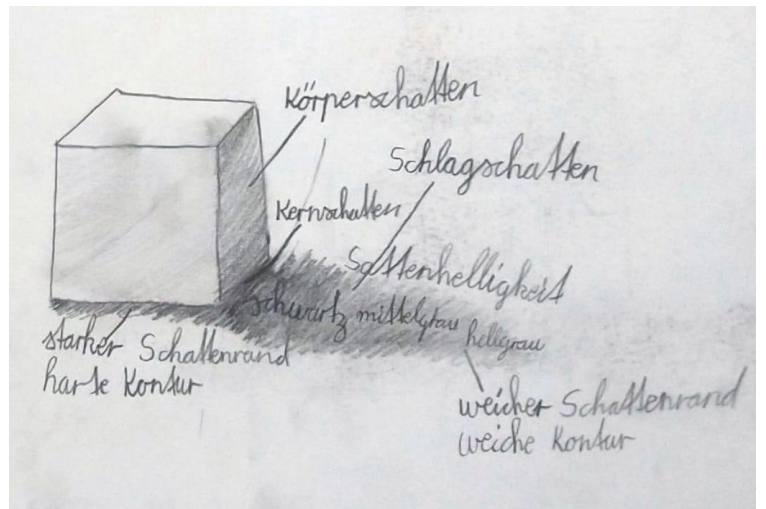 Körperschatten
Schlagschatten
Kernschatten
Sattenhelligkeit
schwartz mittelgrau hellgrau
starker Schattenrand
harte Kontur
weicher Schattenrand
weiche Kontur